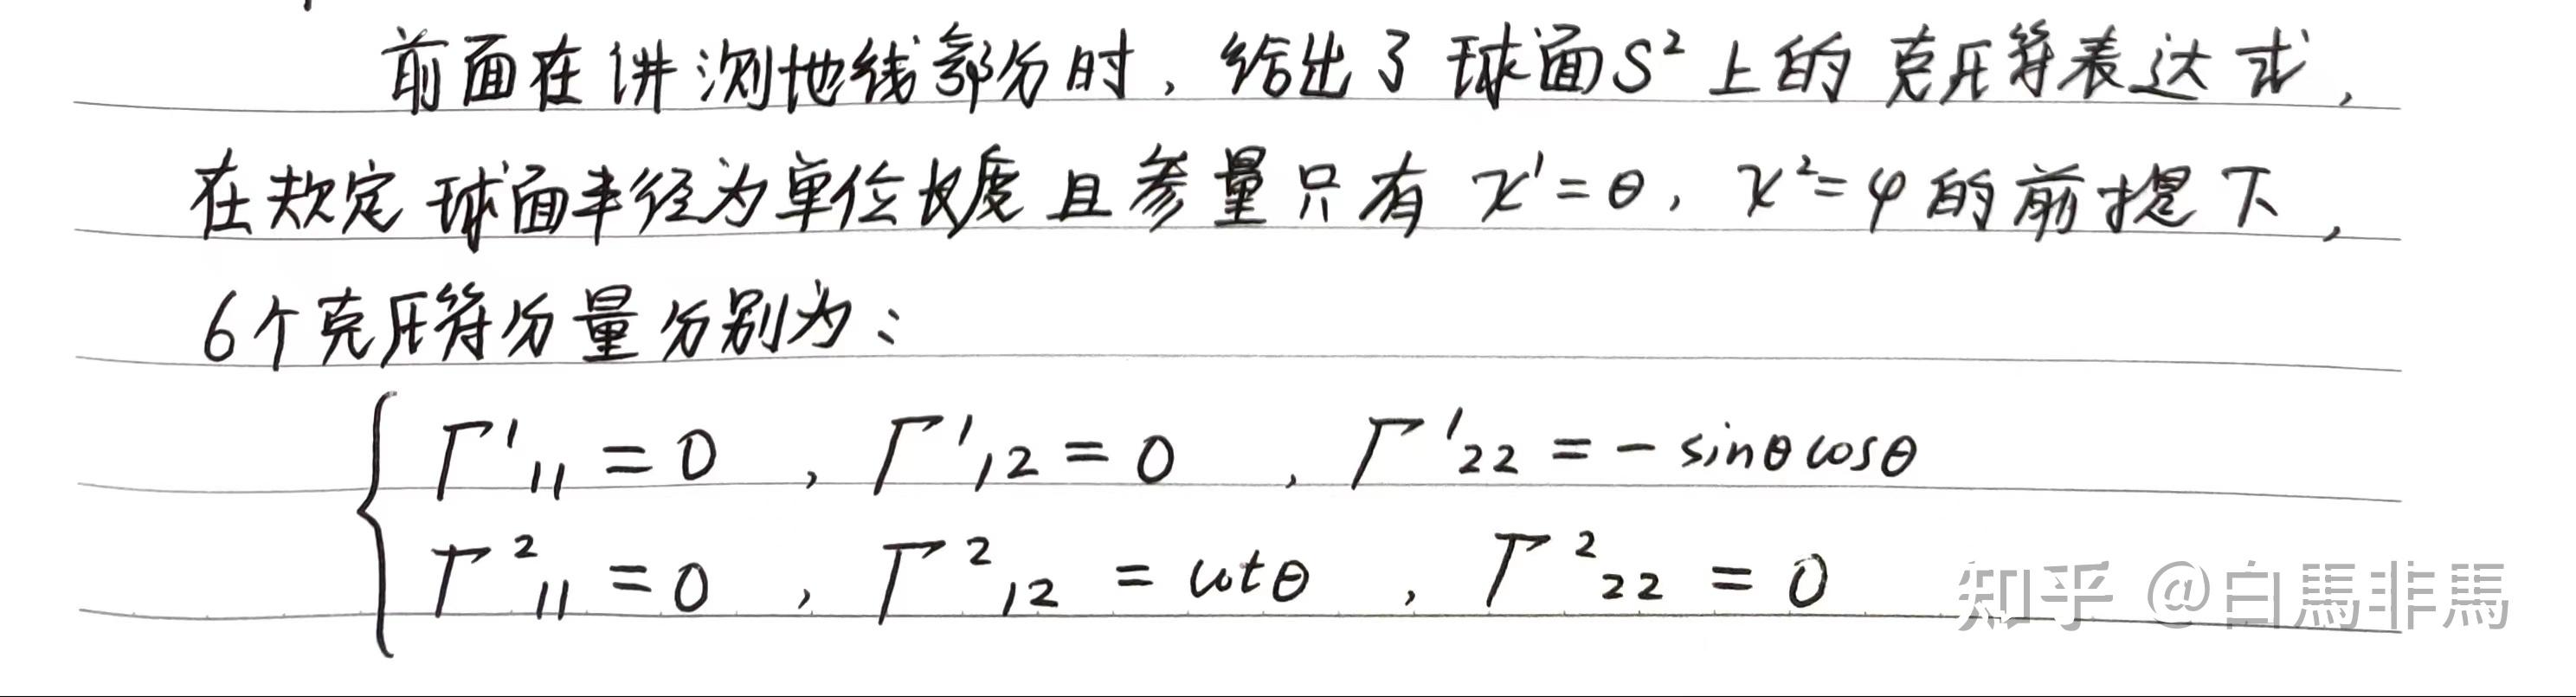 前面在讲测地线部分时，给出了球面S²上的克氏符表达式，
在规定球面半径为单位长度且参量只有 x¹=θ，x²=φ的前提下，
6个克氏符分量分别为：
Γ¹₁₁ = 0 , Γ¹₁₂ = 0 , Γ¹₂₂ = - sinθcosθ
Γ²₁₁ = 0 , Γ²₁₂ = cotθ , Γ²₂₂ = 0
知乎 @白馬非馬